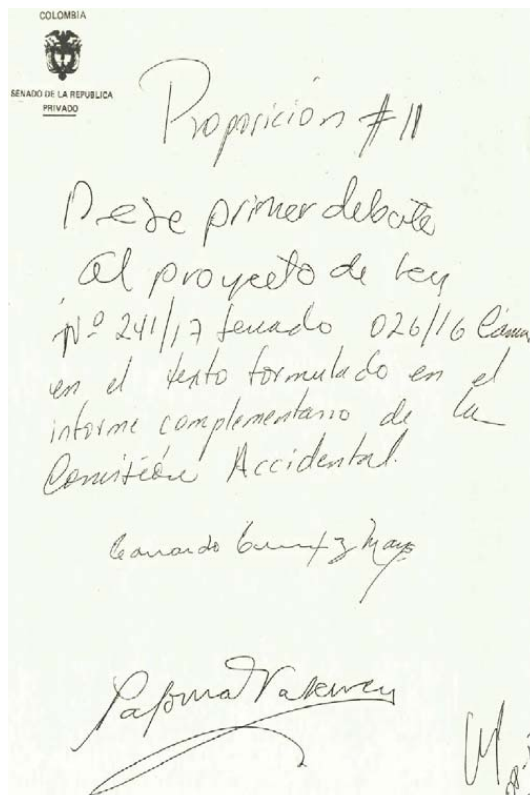 COLOMBIA
SENADO DE LA REPUBLICA
PRIVADO
Proposición # 11
Dese primer debate
al proyecto de ley
Nº 241/17 Senado 026/16 Cáma
en el texto formulado en el
informe complementario de la
Comisión Accidental.
Paloma Valencia